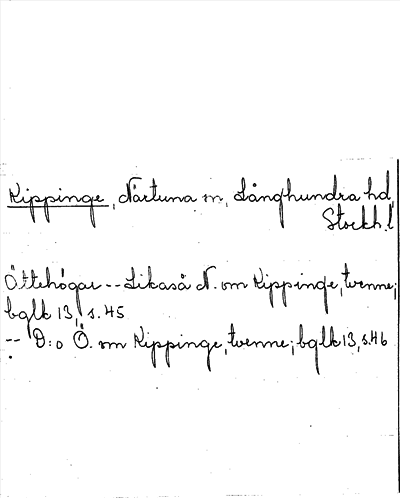 Kippinge, Närtuna sn, Långhundra hd,
Stockh. l
Ättehögar -- Likaså N. om Kippinge, tvenne;
bglk 13, s. 45
-- D:o Ö. om Kippinge, tvenne; bglk 13, s. 46